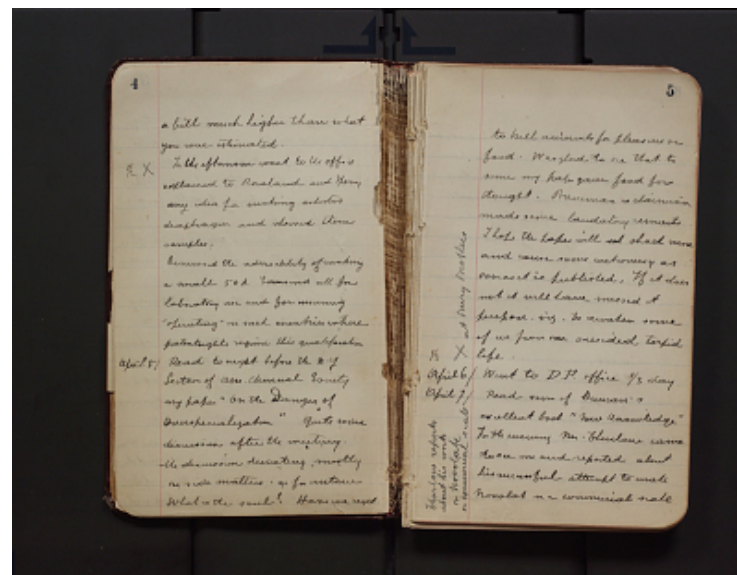 4
a bill much higher than what
you were estimated.
X In the afternoon went to the office
explained to Rossland and
my idea for making asbestos
diaphragm and showed them
samples.
the advisability of making
a small cell for
laboratory use and for running
"operating" in such countries where
patent rights require this qualification
April 5/ Read to night before the N.Y.
Section of Am Chemical Society
my paper "On the Danger of
Overspecialization" Quite some
discussion after the meeting.
the discussion deviating, mostly
on side matters. as for instance
What is the soul? Have we right
5
to kill animals for pleasure or
food. Was glad to see that to
some my paper gave food for
thought. as chairman
made some laudatory remarks
I hope the paper will
and cause some controversy as
soon as it is published. If it does
not it will have missed its
purpose. viz. to awaken some
of us from our one sided torpid
life.
X at Perry Brothers
April 6/ Went to D.P. office 1/2 day
April 7/ Read some of Duncan's
excellent book "New Knowledge"
In the evening Mr. Thurlow came
to see me and reported about
his successful attempt to make
Novolak on a commercial scale
Thurlow reports
about his work
on Novolak
on commercial scale